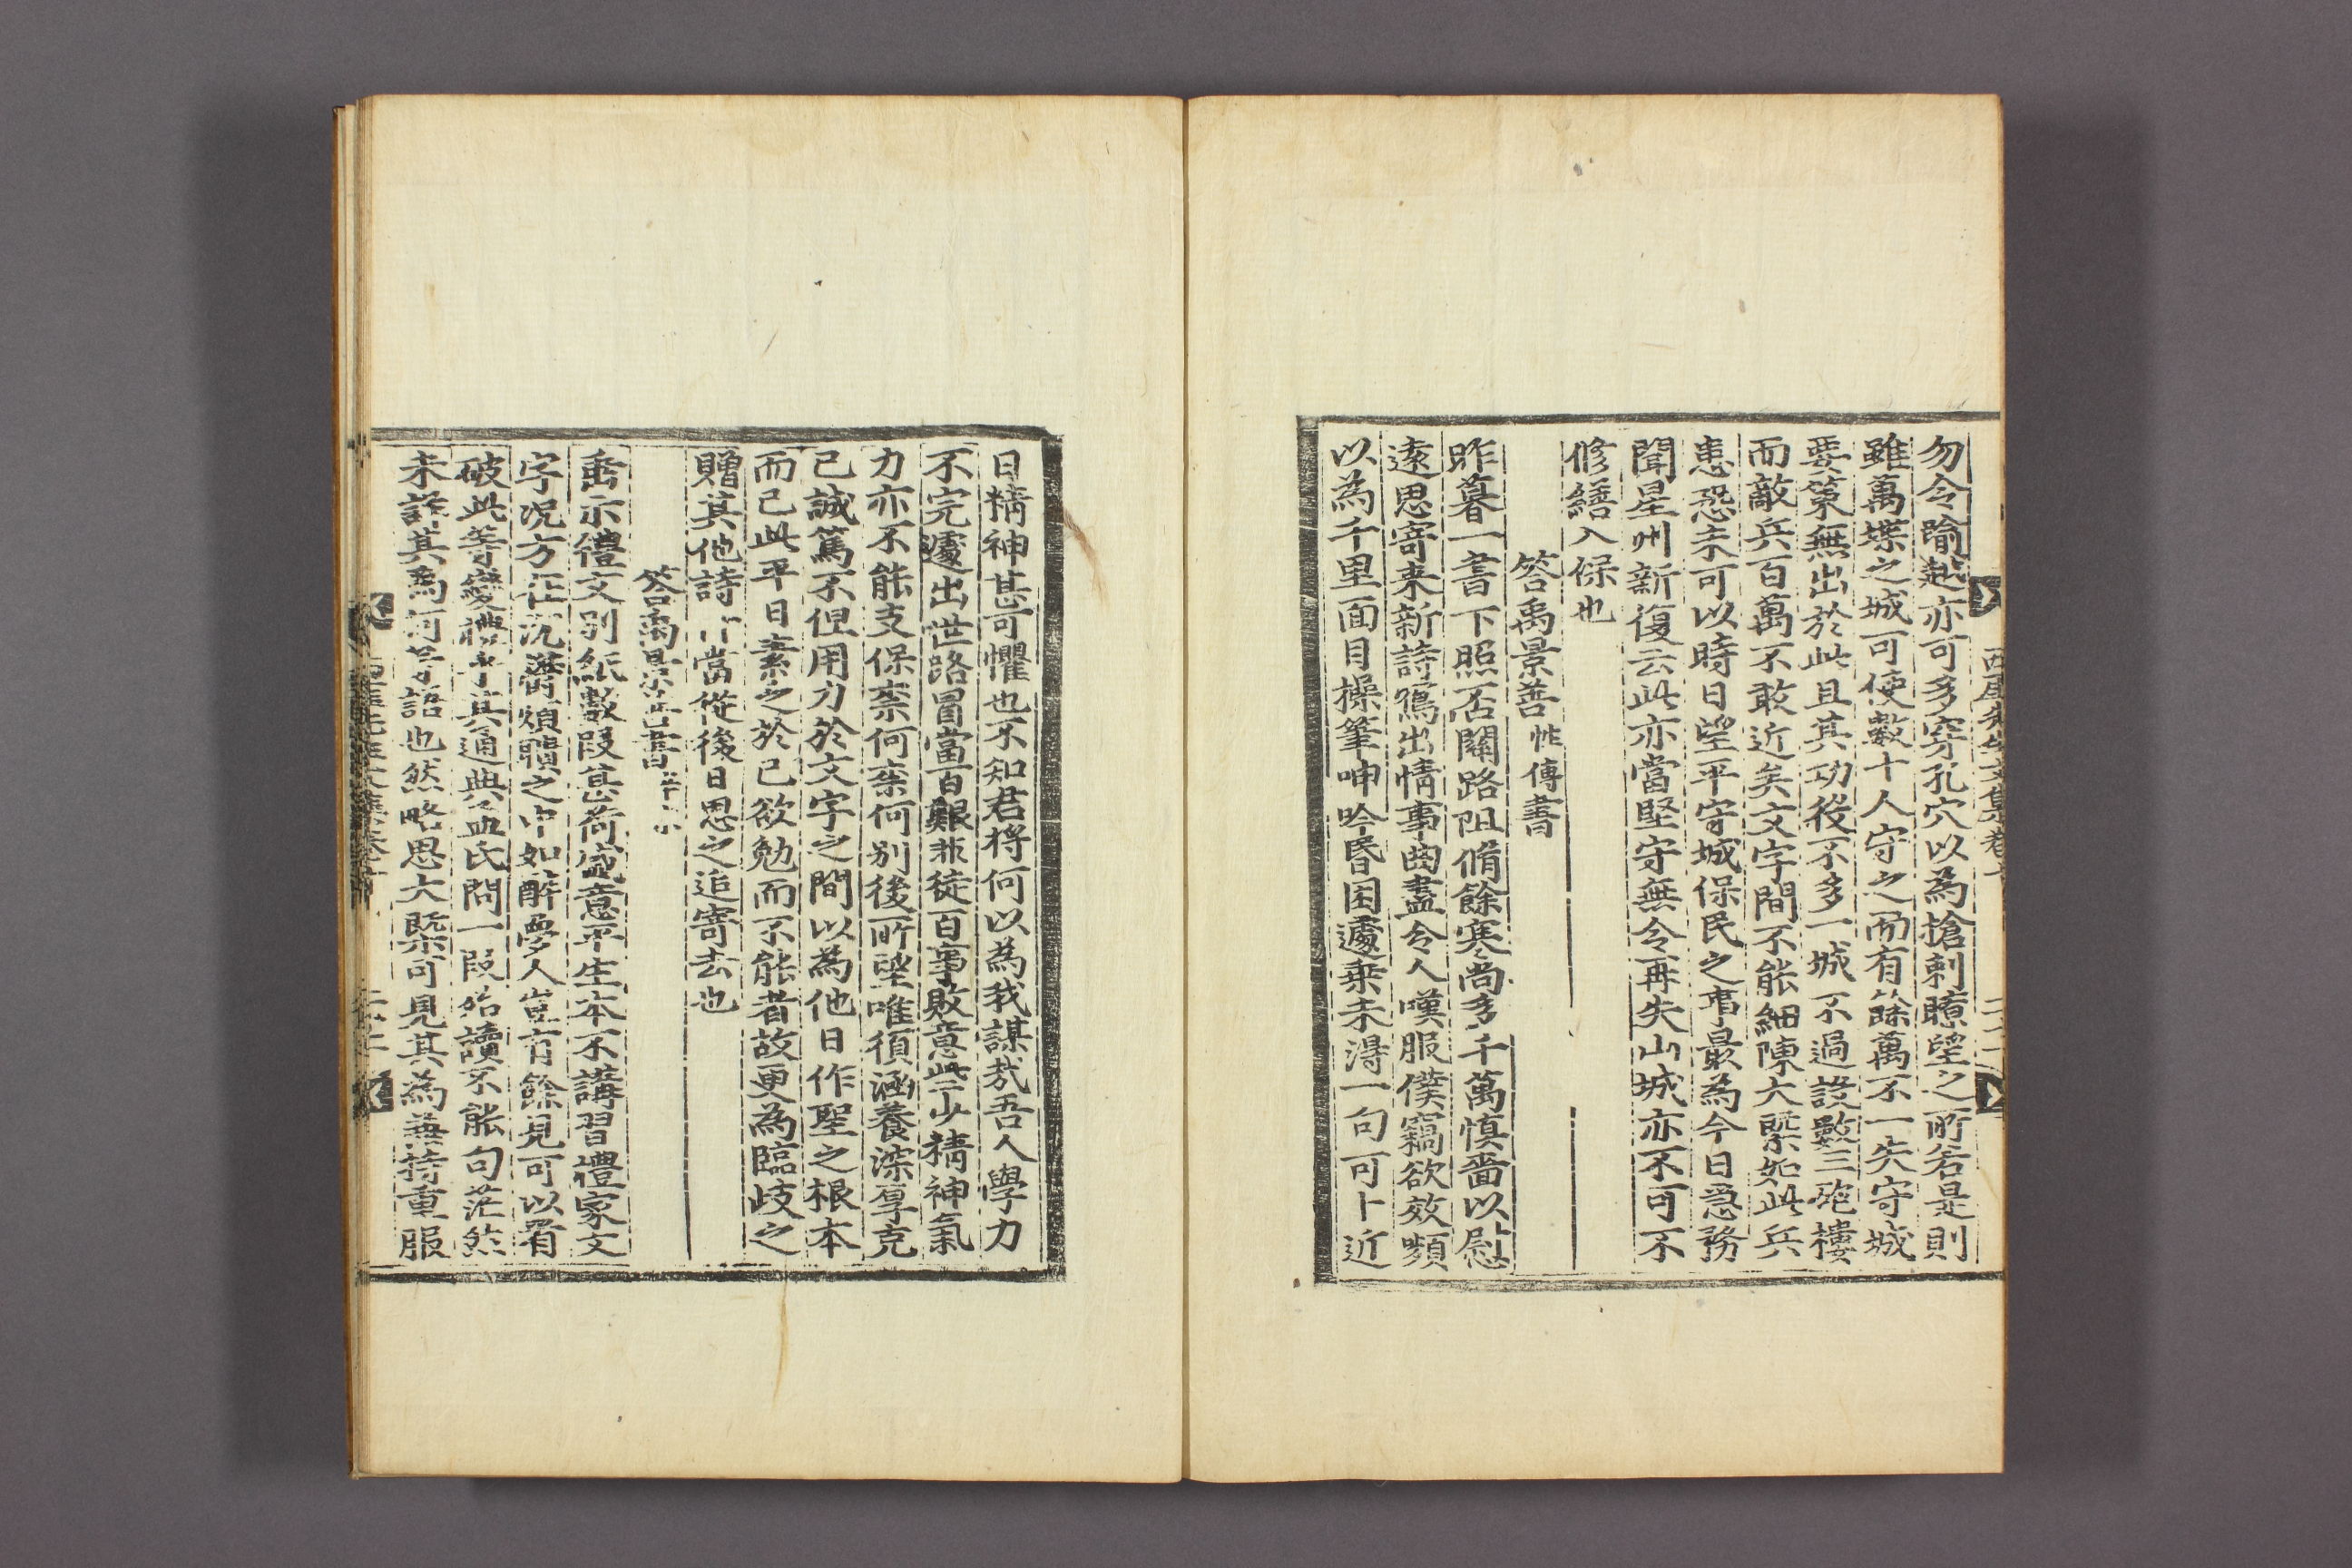 勿令踰越亦可多穿孔穴以為搶刺瞭望之所若是則
雖萬堞之城可使數十人守之而有餘萬不一失守城
要策無出於此且其功役不多一城不過設數三砲樓
而敵兵百萬不敢近矣文字間不能細陳大槩如此兵
患恐未可以時日望平守城保民之事最為今日急務
聞星州新復云此亦當堅守無令再失山城亦不可不
修繕入保也
答禹景善性傳書
昨暮一書下照否關路阻脩餘寒尚多千萬愼嗇以慰
遠思寄来新詩寫出情事曲盡令人嘆服僕竊欲效嚬
以為千里面目操筆呻吟昏困遽乗未得一句可卜近
西厓先生文集卷
日精神甚可懼也不知君将何以為我謀㢤吾人學力
不完遽出世路冒當百艱非徒百事敗意些少精神氣
力亦不能支保柰何柰何别後所望唯須涵養深厚克
己誠篤不但用力於文字之間以為他日作聖之根本
而已此平日素之於己欲勉而不能者故更為臨歧之
贈其他詩 當從後日思之追寄去也
答禹景善書
垂示禮文别紙數段甚荷盛意平生本不講習禮家文
字况方在沉潸煩聵之中如醉夢人豈有餘見可以看
破此等變禮乎其通典孟氏問一段始讀不能句茫然
未詳其為何等語也然略思大槩可見其為無持重服